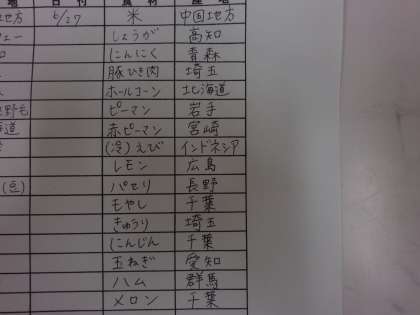 日付 食材 産地
地方 5/27 米 中国地方
しょうが 高知
にんにく 青森
豚ひき肉 埼玉
ホールコーン 北海道
ピーマン 岩手
赤ピーマン 宮崎
(冷)えび インドネシア
レモン 広島
パセリ 長野
もやし 千葉
きゅうり 埼玉
にんじん 千葉
玉ねぎ 愛知
ハム 群馬
メロン 千葉